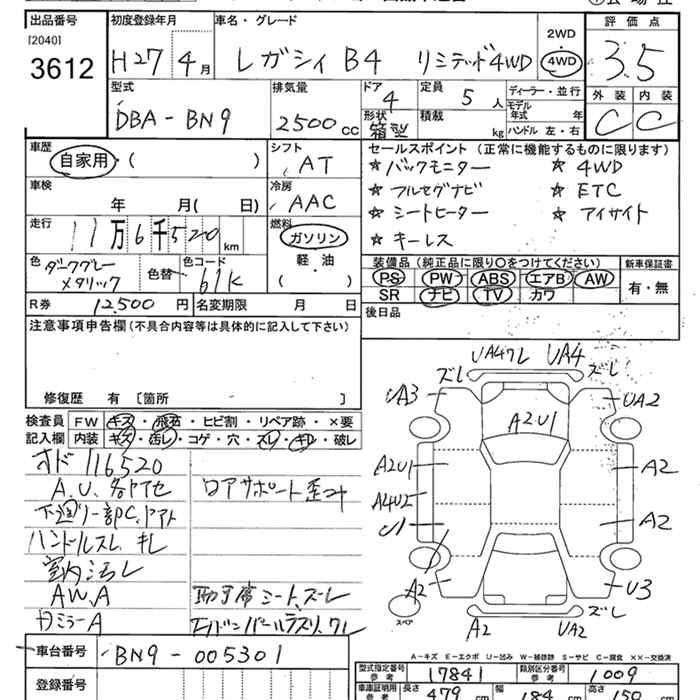 出品番号
[2040]
3612
初度登録年月
H27年4月
車名・グレード
レガシィ B4 リミテッド4WD
2WD
4WD
評価点
3.5
外装 内装
C C
型式
DBA-BN9
排気量
2500cc
ドア
4
形状
箱型
定員
5人
積載
kg
ディーラー・並行
モデル年式 年
ハンドル 左・右
車歴
自家用・( )
シフト
AT
車検
年 月( 日)
冷房
AAC
走行
11万6千520km
燃料
ガソリン
軽・油
( )
色 ダークグレーメタリック
色替
色コード
61K
R券 12,500円
名変期限 月 日
セールスポイント(正常に機能するものに限ります)
☆バックモニター ☆4WD
☆フルセグナビ ☆ETC
☆シートヒーター ☆アイサイト
☆キーレス
装備品(純正品に限り○をつけてください)
PS PW ABS エアB AW
SR ナビ TV カワ
新車保証書
有・無
後日品
注意事項申告欄(不具合内容等は具体的に記入して下さい)
修復歴 有 〔箇所 〕
検査員記入欄
FW キズ・飛石・ヒビ割・リペア跡・×要
内装 キズ・汚レ・コゲ・穴・スレ・キレ・破レ
オド116520
A.U.各所
下廻り一部C
ハンドルスレ、キレ
室内汚レ
AW.A
ロアサポート歪
助手席シート、ズレ
車台番号
BN9-005301
登録番号
UA4ワレ UA4
ズレ ズレ
UA3 UA2
A2U1
A2U1 A2
A4U2
U1 A2
A2 U3
ズレ
A2 UA2
スペア
A-キズ E-エクボ U-凹み W-補修跡 S-サビ C-腐食 ××-交換済
型式指定番号 参考 17841
類別区分番号 参考 1009
車庫証明用 参考 長さ 479cm 幅 184cm 高さ 150cm